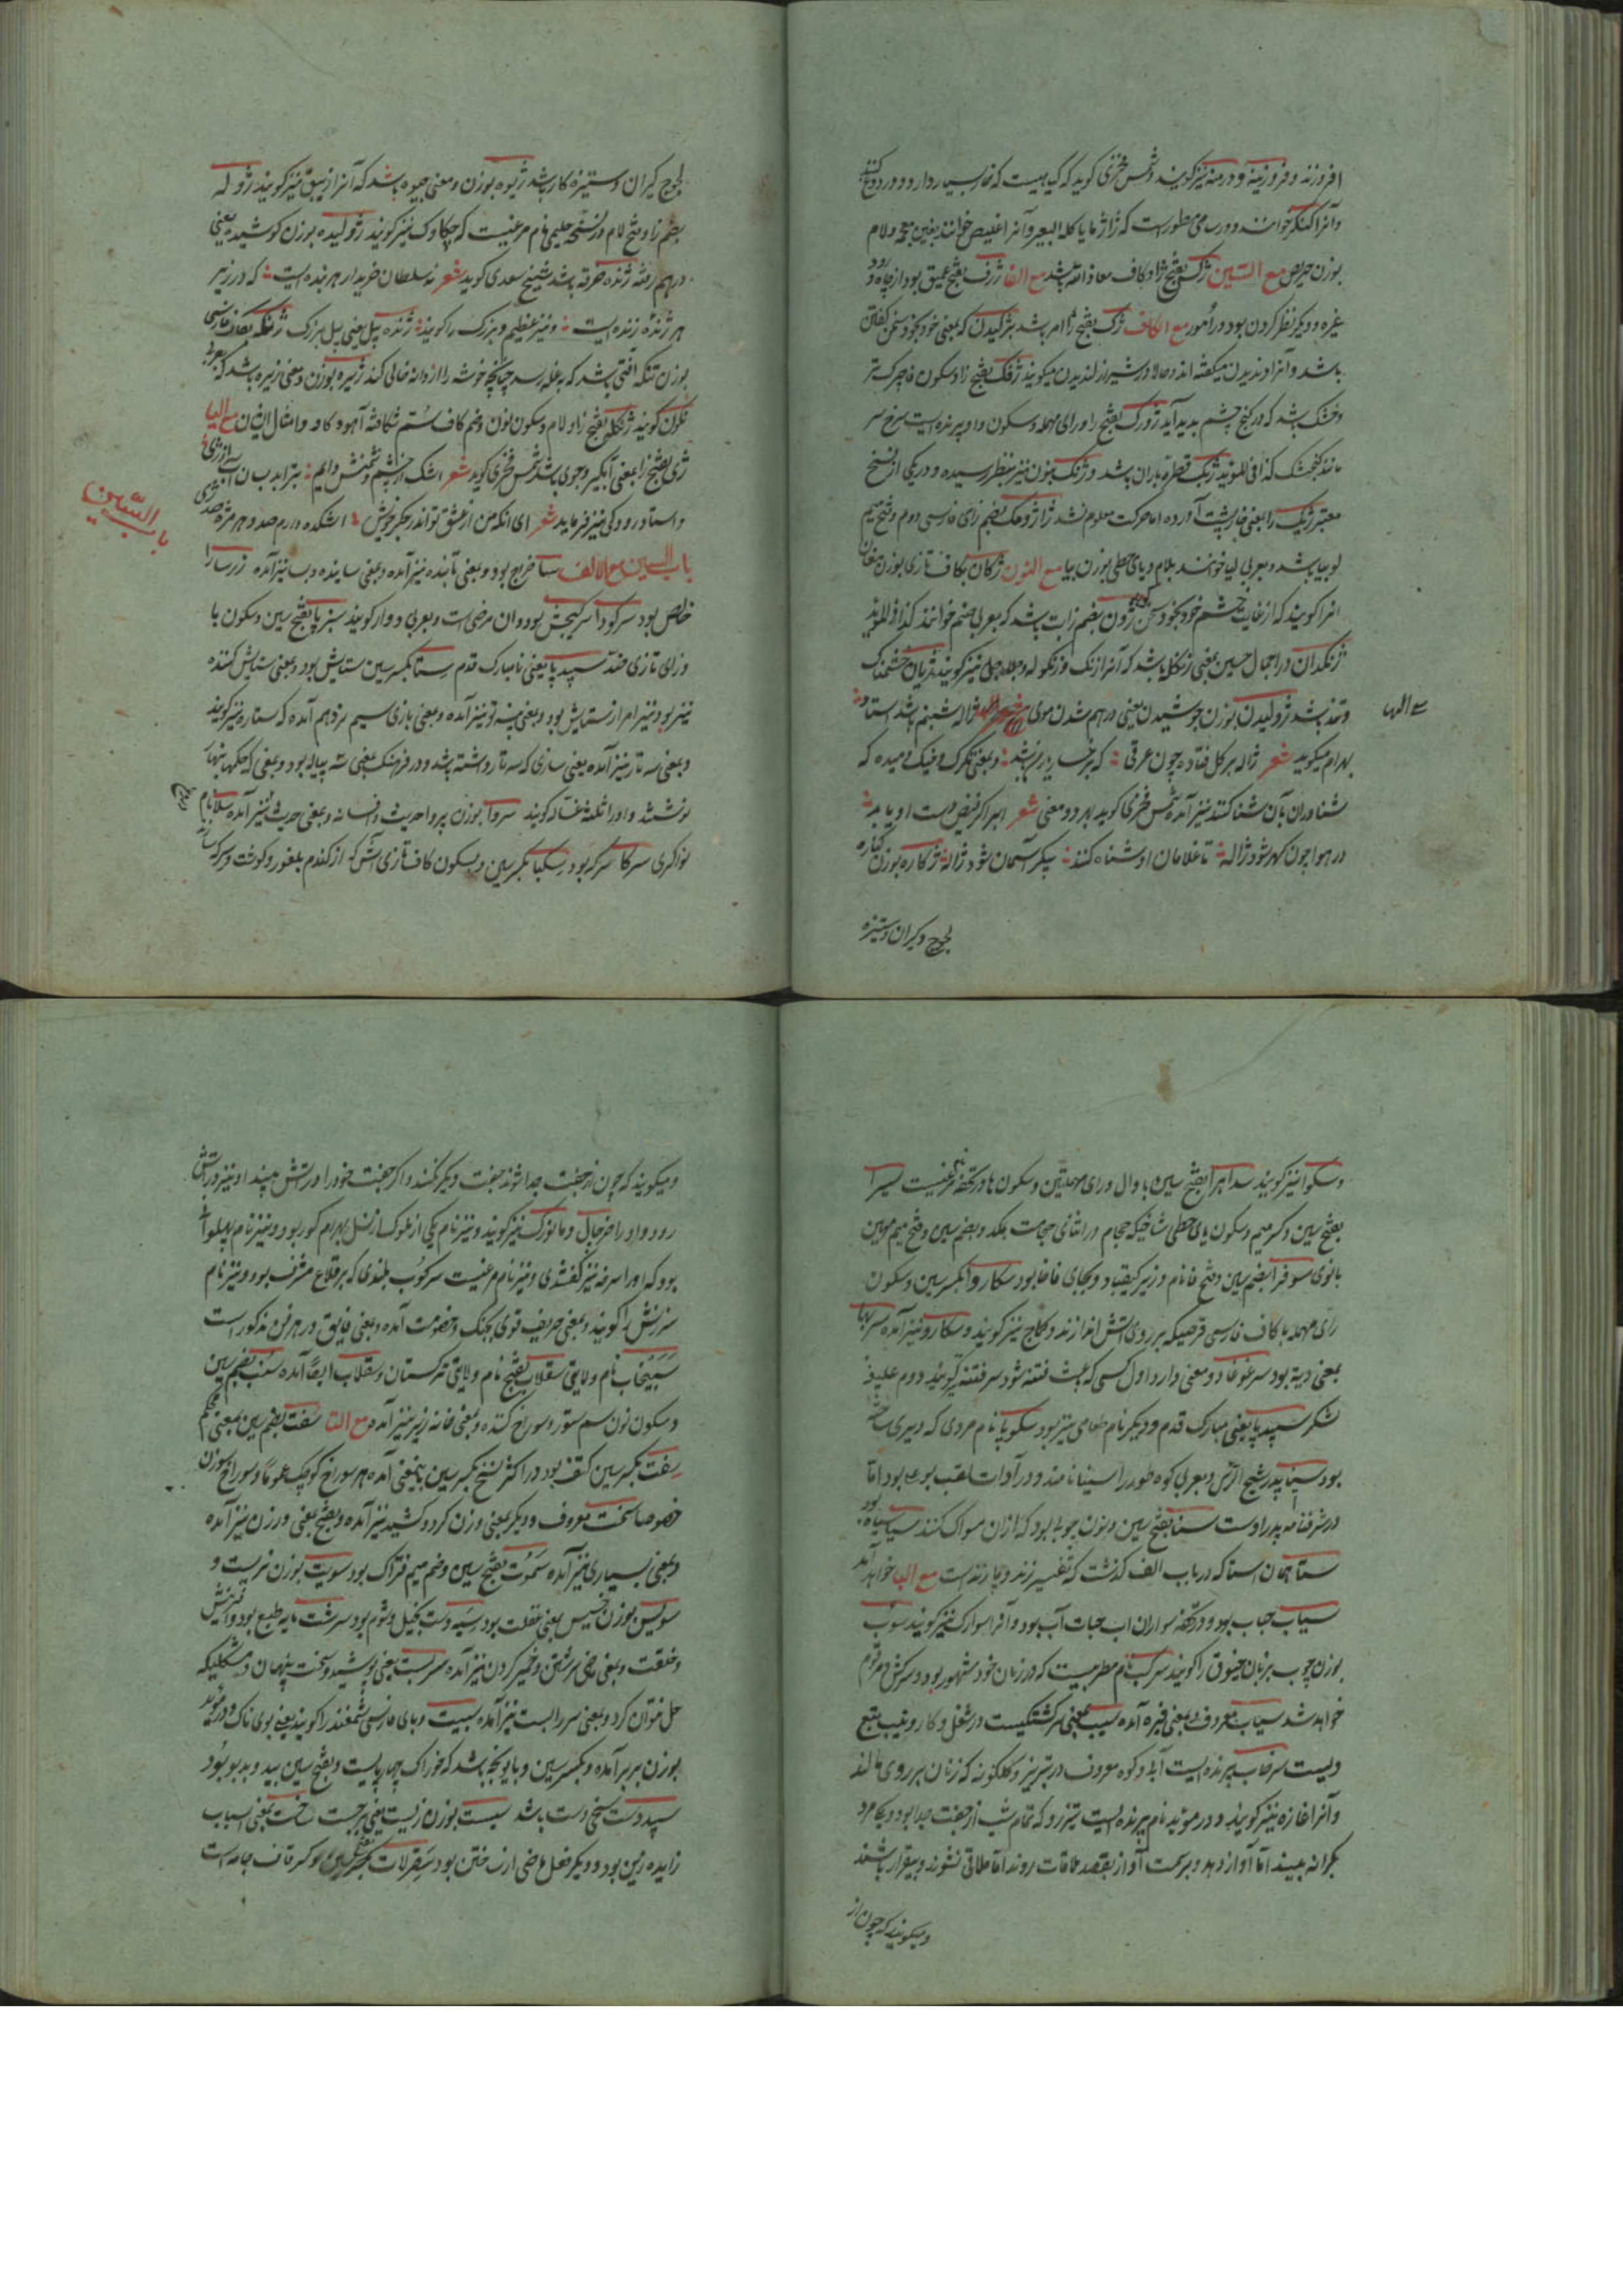 افروزنه و فروزینه و درمنه نیز گویند و شمس فخری گوید که گیاهیست که خار بسیار دارد و در دوغ کنند
و آنرا کنگر خوانند و در سامی مسطور است که ژاژ مایا کله البعیر و آنرا اغلیص خوانند بغین معجمه و لام
بوزن حریص مع السین ژکس بفتح ژا و کاف معاذ الله باشد مع الفا ژرف بفتح عمیق بود از چاه و رود
و غیره و دیگر نظر کردن بود در امور مع الکاف ژک بفتح ژا امر باشد بژکیدن که بمعنی خود بخود سخن گفتن
باشد و آنرا دندیدن میگفته اند و حالا در شیراز لندیدن میگویند ژفک بفتح زا و سکون فا چرک تر
و خشک باشد که در کنج چشم بدید آید ژورک بفتح زا و رای مهمله و سکون واو پرنده ایست سرخ سر
مانند کنجشک کذا فی الموید ژنک قطره باران باشد و ژنک بنون نیز بنظر رسیده و در یکی از نسخ
معتبر ژنک را بمعنی خارپشت آورده اما حرکت معلوم نشد ژاژومک بضم زای فارسی دوم و فتح میم
لوبیا باشد و بعربی لیا خوانند بلام و یای حطی بوزن بیا مع النون ژکان بکاف تازی بوزن مغان
انرا گویند که از غایت خشم خود بخود سخن گوید ژون بضم زا بت باشد که بعربی صنم خوانند کذا فی الموید
ژنگدان در اجمال حسین بمعنی زنگله باشد که آنرا زنگ و زنگوله و جلاجل نیز گویند ژیان خشمناک
و تند باشد ژولیدن بوزن جوشیدن یعنی درهم شدن موی مع الها ژاله شبنم باشد استاد
مع الها
بهرام میگوید شعر ژاله بر گل فتاده چون عرقی که بر رخسار یار باشد و بمعنی تگرگ و خیک دمیده که
شناوران بآن شنا کنند نیز آمده شمس فخری گوید بهر دو معنی شعر ابر اگر فیض دست او یابد
در هوا چون گهر شود ژاله تا غلامان او شناه کنند پیکر آسمان شود ژاله ژکاره بوزن کناره
لجوج و گران و ستیزه
لجوج گران و ستیزه کار باشد ژیوه بوزن و معنی جیوه باشد که آنرا زیبق نیز گویند ژوله
بضم زا و فتح لام در نسخه حلیمی نام مرغیست که چکاوک نیز گویند ژولیده بوزن کوشیده یعنی
درهم رفته ژنده خرقه باشد شیخ سعدی گوید شعر نه سلطان خریدار هر بنده ایست که در زیر
هر ژنده زنده ایست و نیز عظیم و بزرگ را گویند ژنده پیل یعنی پیل بزرگ ژنگه بکاف فارسی
بوزن تنگه آفتی باشد که بغله رسد چنانچه خوشه را از دانه خالی کند ژیره بوزن و معنی زیره باشد که بعربی
کمون گویند ژنگله بفتح زا و لام و سکون نون و ضم کاف سم شکافته آهو و گاو و امثال ایشان مع الیا
ژی بفتح زا بمعنی آبگیر و جوی باشد شمس فخری گوید شعر اشک از چشم دشمنش دایم بترابد بسان آب از ژی
و استاد رودکی نیز فرماید شعر ای آنکه من از عشق تو اندر جگر خویش آتشکده دارم صد و بر هر مژه صد ژی
باب السین
باب السین مع الالف سا خراج بود و بمعنی تابنده نیز آمده و بمعنی ساینده و بسا نیز آمده زر سارا
خالص بود سرکودا سرکیجش بود و آن مرضی است و بعربی دوار گویند سبز پا بفتح سین و سکون با
و زای تازی ضد سپید پا یعنی نامبارک قدم ستا بکسر سین ستایش بود و بمعنی ستایش کننده
نیز بود و نیز امر از ستایش بود و بمعنی سه تو نیز آمده و بمعنی بازی سیم نرد هم آمده که ستاره نیز گویند
و بمعنی سه تار نیز آمده یعنی سازی که سه تار داشته باشد و در فرهنگ بمعنی سه پیاله بود و بمعنی که حکما بنهار
نوشند و او را ثلثه غساله گویند سروا بوزن پروا حدیث و افسانه و بمعنی حدیث نیز آمده سلا نام
نواگری سرکا سرکه بود سکبا بکسر سین و سکون کاف تازی آشی که از گندم بلغور و گوشت و سرکه سازند
و سکوا نیز گویند سداهرا بفتح سین با دال و رای مهملتین و سکون ها در تحفه نام مرغیست سیرا
بفتح سین و کسر میم و سکون یای حطی شاخیکه حجام در اثنای حجامت بمکد و بضم سین و فتح میم مهین
بانوی سوفرا بضم سین و فتح فا نام وزیر کیقباد و بجای فا خا بود سکاروا بکسر سین و سکون
رای مهمله با کاف فارسی قرصیکه بر روی آتش اندازند و کماج نیز گویند و سکارو نیز آمده سربها
بمعنی دیة بود سرغوغا دو معنی دارد اول کسی که باعث فتنه شود سر فتنه گویند دوم علیفه
لشکر سپید پا یعنی مبارک قدم و دیگر نام طعامی نیز بود سکوپا نام مردی که دیری ساخته
بود سینا پدر شیخ الرئیس و بعربی کوه طور را سینا نامند و در آدات لقب بوعلی بود اما
در شرفنامه پدر اوست سنا بفتح سین و نون چوبی بود که ازان مسواک کنند سیا سیاه بود
ستا همان استا که در باب الف گذشت که تفسیر زند و پازند است مع البا خواهد آمد
سیاب حباب بود و در تحفه سواران آب حباب آب بود و آنرا سوارک نیز گویند سوب
بوزن چوب بزبان جنوق را گویند سرکب نام مطربیست که در زبان خود مشهور بود و سرکش هم مرقوم
خواهد شد سیاب معروف و بمعنی خیره آمده سیب بمعنی سرگشتگیست در شغل و کار و تیب بتبع
ویست سرخاب پرنده ایست آبی و کوه معروف در تبریز و گلگونه که زنان بر روی مالند
و آنرا غازه نیز گویند و در موید نام پرنده ایست تیزرو که تمام شب از جفت جدا بود و یکدیگر
بکرانه ببیند اما آواز دهد و بر سمت آواز بقصد ملاقات روند اما ملاقی نشوند و بیقرار باشند
و میگویند که چون از
و میگویند که چون از جفت جدا شوند جفت دیگر نکنند و اگر جفت خود را در آتش بیند او نیز در آتش
رود و او را خرچال و مانورک نیز گویند و نیز نام یکی از ملوک از نسل بهرام گور بود و نیز نام پهلوانی
بود که او را سرخه نیز گفتندی و نیز نام مرغیست سرکوب بلندی که بر قلاع مشرف بود و نیز نام
سرزنش را گویند و بمعنی حریف قوی بجنگ و خصومت آمده و بمعنی فایق در هر فن مذکور است
سپیجاب نام ولایتی سقلاب بفتح نام ولایتی ترکستان و سقلاب ایضا آمده سنب بضم سین
و سکون نون سم ستور و سوراخ کننده و بمعنی خانه زیر نیز آمده مع التا سفت بضم سین بمعنی محکم
سفت بکسر سین کتف بود و در اکثر نسخ بکسر سین باینمعنی آمده هر سوراخ کوچک عموما و سوراخ سوزن
خصوصا سخت معروف و دیگر بمعنی وزن کرد و کشید نیز آمده و بفتح بمعنی ورزن نیز آمده
و بمعنی بسیاری نیز آمده سموت بفتح سین و ضم میم فتراک بود سویت بوزن نریت و
سویس بوزن خسیس بمعنی غفلت بود سیه دست بخیل و شوم بود سرشت مایه طبع بود و آفرینش
و خلقت و بمعنی ماضی سرشتن و خمیر کردن نیز آمده سربست یعنی پوشیده و سخت پنهان و مشکلیکه
حل نتوان کرد و بمعنی سر را بست نیز آمده سپست و بای فارسی شمغند را گویند یعنی بوی ناک و در موید
بوزن بربر آمده و بکسر سین و با یونجه باشد که خوراک چهارپایست و بفتح سین پید و بدبو بود
سپیددست سخی دست باشد سبست بوزن زیست یعنی برجست ساخت بمعنی اسباب
زاید زین بود و دیگر فعل ماضی از ساختن بود سقرلات بکسر قاف جامه است